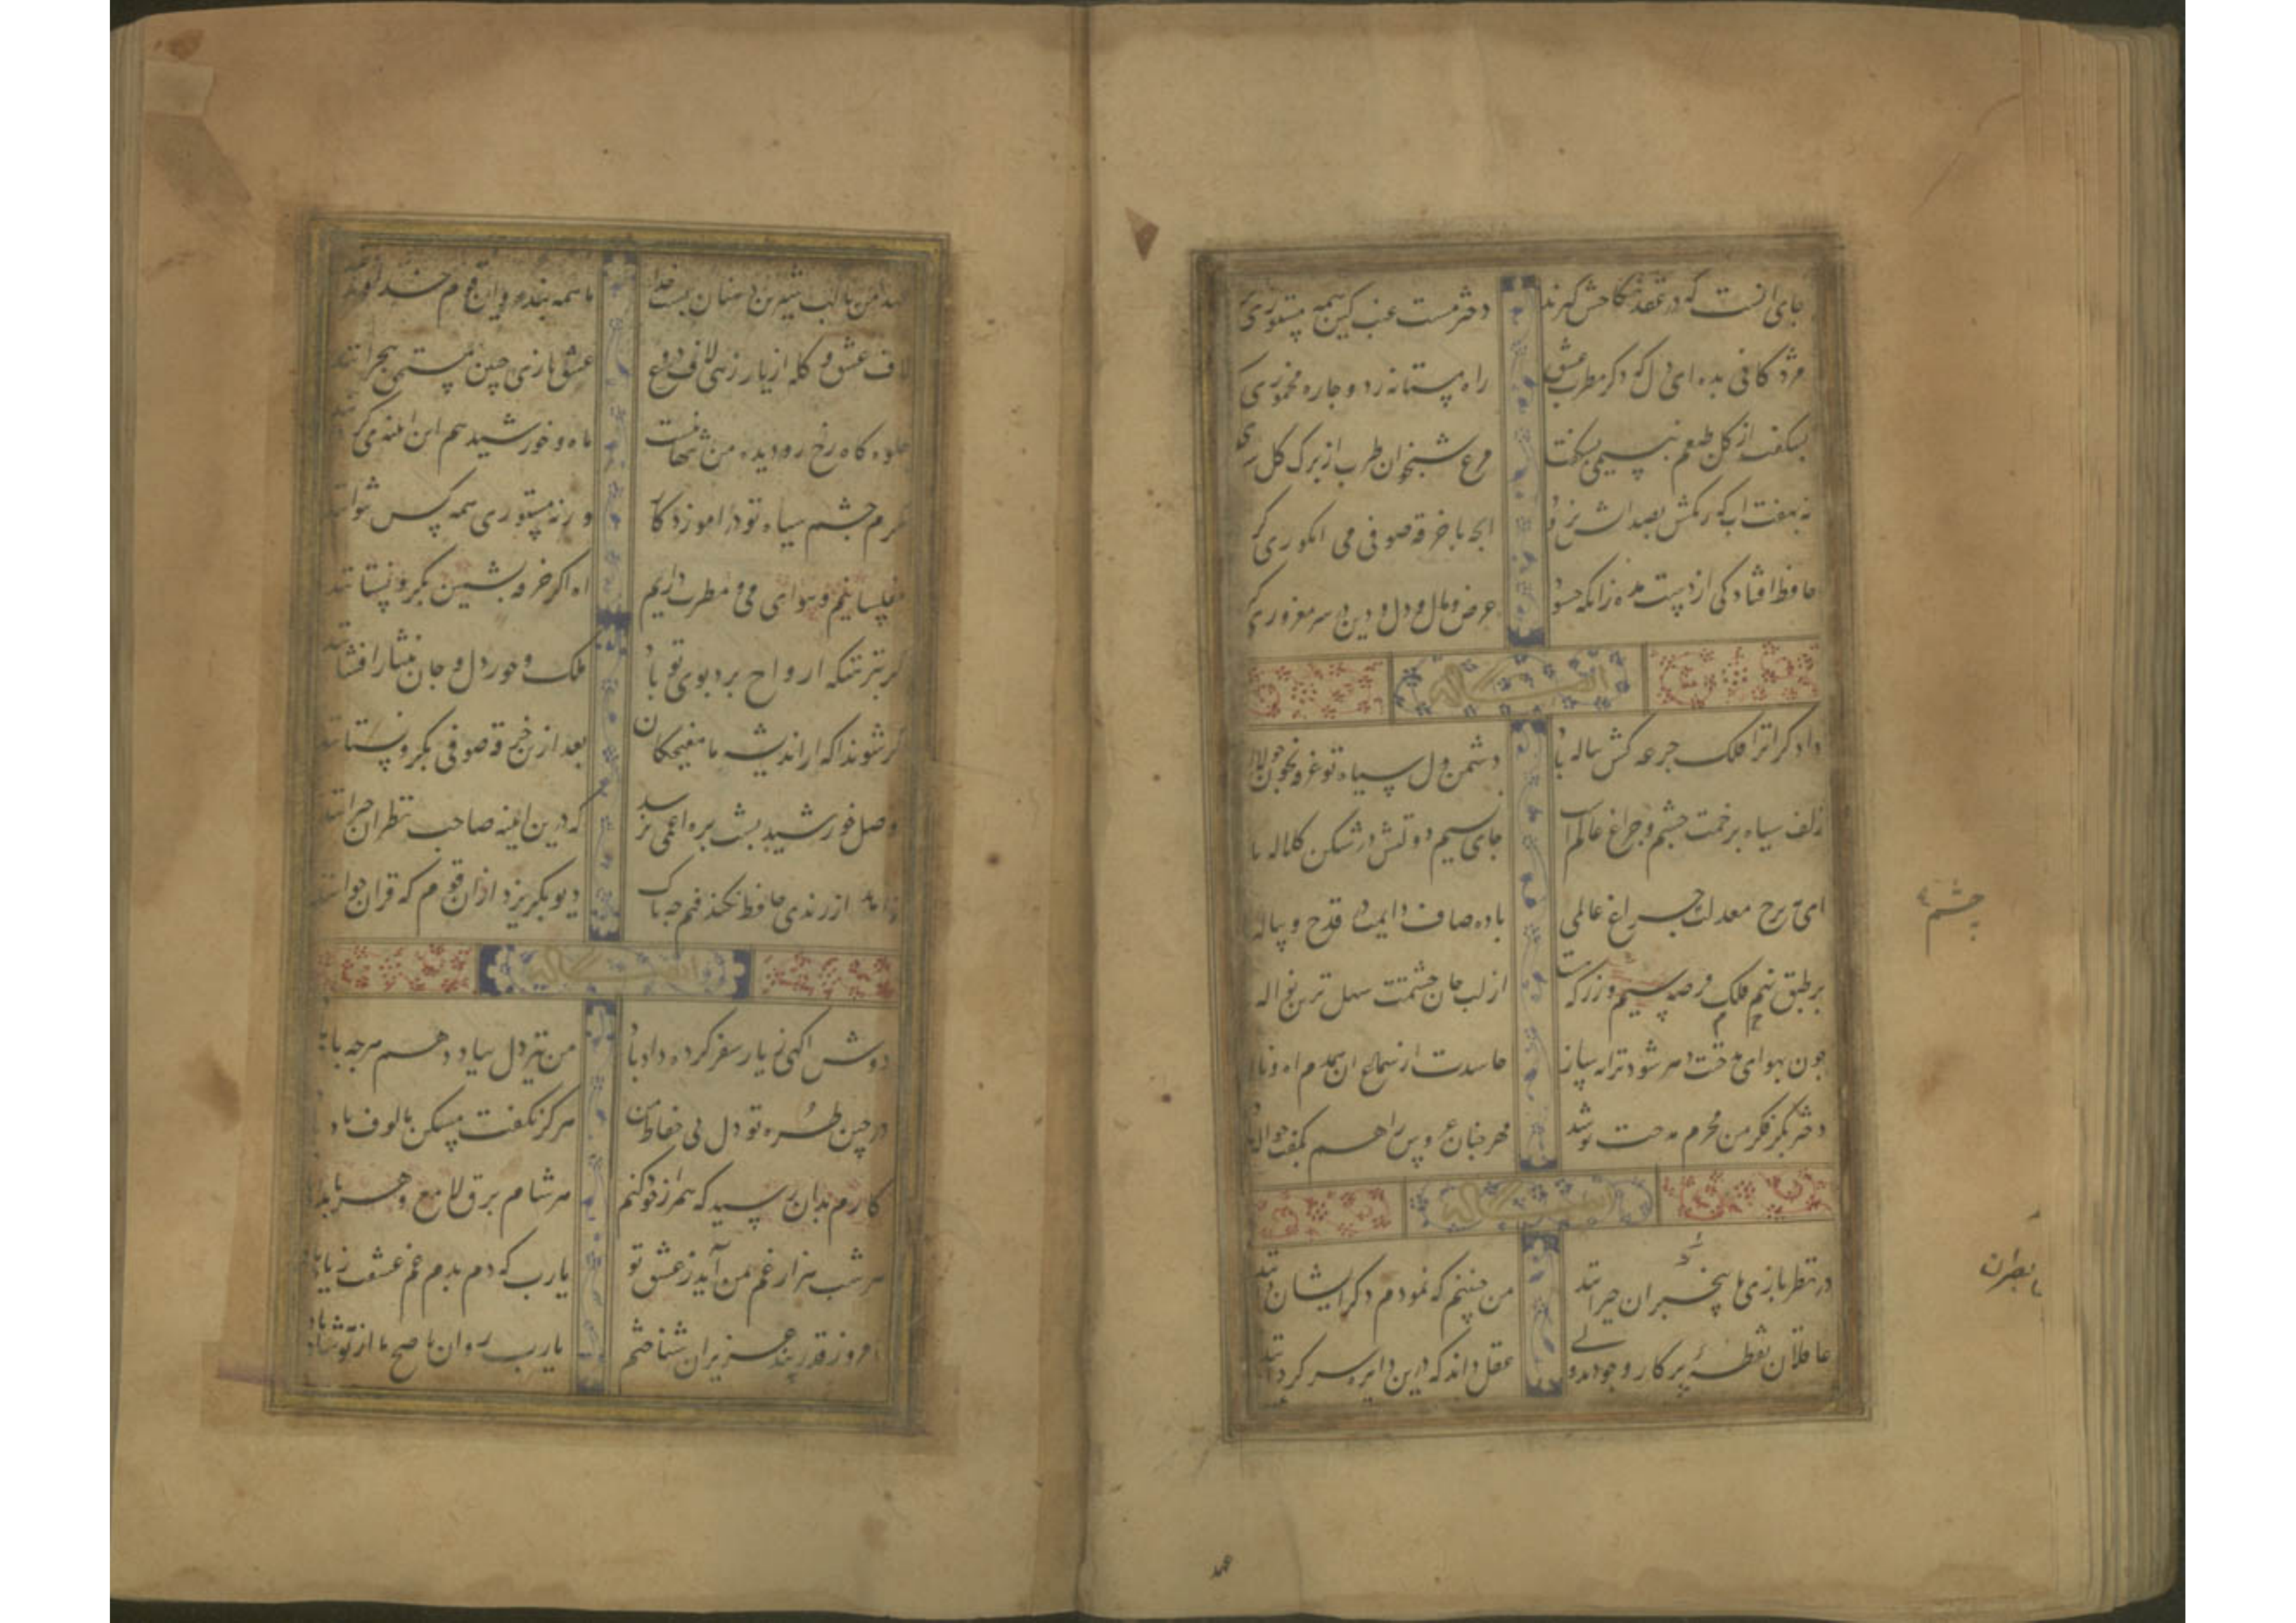 جای انست که در عقد نکاحش گیرند دختر مست عنب کین همه مستوری کرد
مژدگانی بده ای دل که دگر مطرب عشق راه مستانه زد و چاره مخموری کرد
بشکفت از گل طبعم نسیمی بشکفت مرغ شبخوان طرب از برک گل سوری کرد
نه بهفت اب که رنگش بصد اتش نرود انچه با خرقه صوفی می انکوری کرد
حافظ افتادکی از دست مده زانکه حسود عرض و مال و دل و دین در سر مغروری کرد
داد کرا ترا فلک جرعه کش پیاله باد دشمن دل سیاه تو غرقه بخون
زلف سیاه پرخمت چشم و چراغ عالم است جای نسیم دولتش در شکن کلاله باد
ای مه برج معدلت چراغ عالمی باده صاف دایمت در قدح و پیاله
نه طبق فلک قرصه سیم و زر که هست از لب خوان حشمتت سهل ترین نواله
چون بهوای مدحتت شود ترانه ساز حاسدت از سماع ان همدم اه و ناله
دختر بکر فکر من محرم مدحت تو شد مهر چنان عروس را هم بکفت حواله
در نظر بازی ما بیخبران حیرانند من چنینم که نمودم دگر ایشان دانند
عاقلان نقطه پرکار وجودند ولی عقل داند که درین دایره سرگردانند
چشم
محمد
عهد من با لب شیرین دهنان بست خدا ما همه بنده و این قوم خداوندانند
لاف عشق و کله از یار زهی لاف دروغ عشق بازی چنین مستحق هجرانند
جلوه گاه رخ او دیده من تنها نیست ماه و خورشید هم این اینه می گردانند
مگرم چشم سیاه تو در اموزد کار ورنه مستوری همه کس نتوانند
مفلسانیم و هوای می و مطرب داریم اه اکر خرقه پشمین بگرو نستانند
گر بنزهتگه ارواح برد بوی تو باد ملک و حور دل و جان نثار افشانند
گر شوند اگه از اندیشه ما مغبچگان بعد ازین خرقه صوفی بگرو نستانند
وصل خورشید بشب پره اعمی نرسد که درین اینه صاحب نظران حیرانند
زاهد از رندی حافظ نکند فهم چه باک دیو بگریزد ازان قوم که قران خوانند
دوش اکهی ز یار سفر کرده داد باد من نیز دل بباد دهم هر چه باد
در چین طره تو دل بی حفاظ من هرگز نگفت مسکن مالوف یاد
کارم بدان رسید که همراز خود کنم هر شام برق لامع و هر بامداد
هر شب هزار غم بمن آید ز عشق تو یارب که دم بدم غم عشقت زیاد
امروز قدر پند عزیزان شناختم یارب روان ناصح ما از تو شاد باد